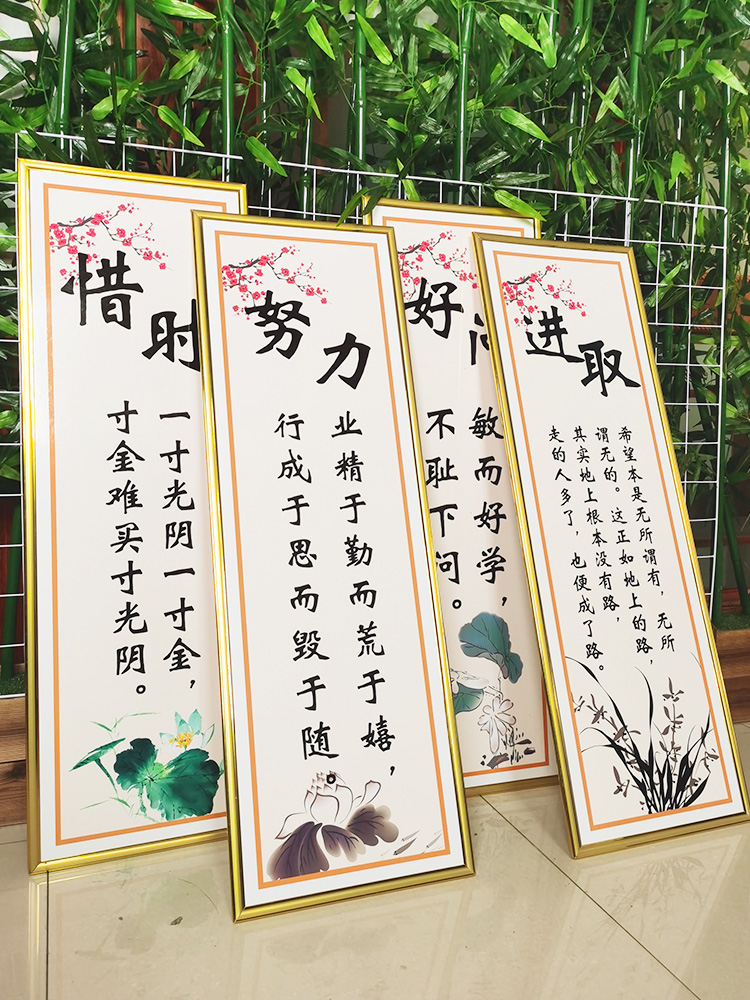 惜时
一寸光阴一寸金，
寸金难买寸光阴。
努力
业精于勤而荒于嬉，
行成于思而毁于随。
好
敏而好学，
不耻下问。
进取
希望本是无所谓有，无所
谓无的。这正如地上的路，
其实地上根本没有路，
走的人多了，也便成了路。